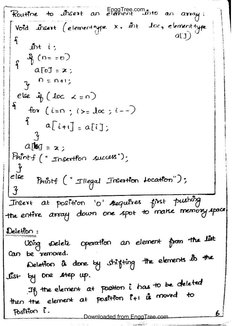 EnggTree.com
Routine to insert an element into an array:
Void insert (elementtype x, int loc, elementtype
a[])
{
int i;
if (n==0)
{
a[0]=x;
n=n+1;
}
else if (loc <=n)
{
for (i=n; i>=loc; i--)
{
a[i+1]=a[i];
}
a[loc]=x;
Printf ("Insertion success");
}
else
Printf ("Illegal Insertion Location");
}
Insert at position '0' requires first pushing
the entire array down one spot to make memory space.
Deletion:
Using Delete operation an element from the list
can be removed.
Deletion is done by shifting the elements in the
list by one step up.
If the element at position i has to be deleted
then the element at position i+1 is moved to
Position i.
6
Downloaded from EnggTree.com